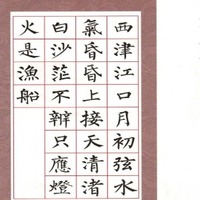 西津江口月初弦水
氣昏昏上接天清渚
白沙茫不辯只應燈
火是漁船